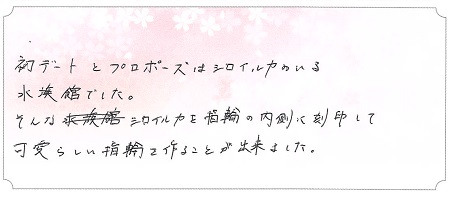 初デートとプロポーズはシロイルカのいる
水族館でした。
そんな水族館シロイルカを指輪の内側に刻印して
可愛らしい指輪を作ることが出来ました。